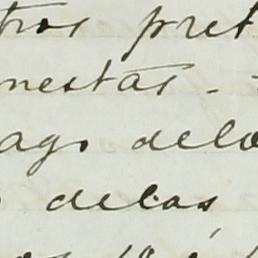 tros pret
nestas -
ago delo
delas,